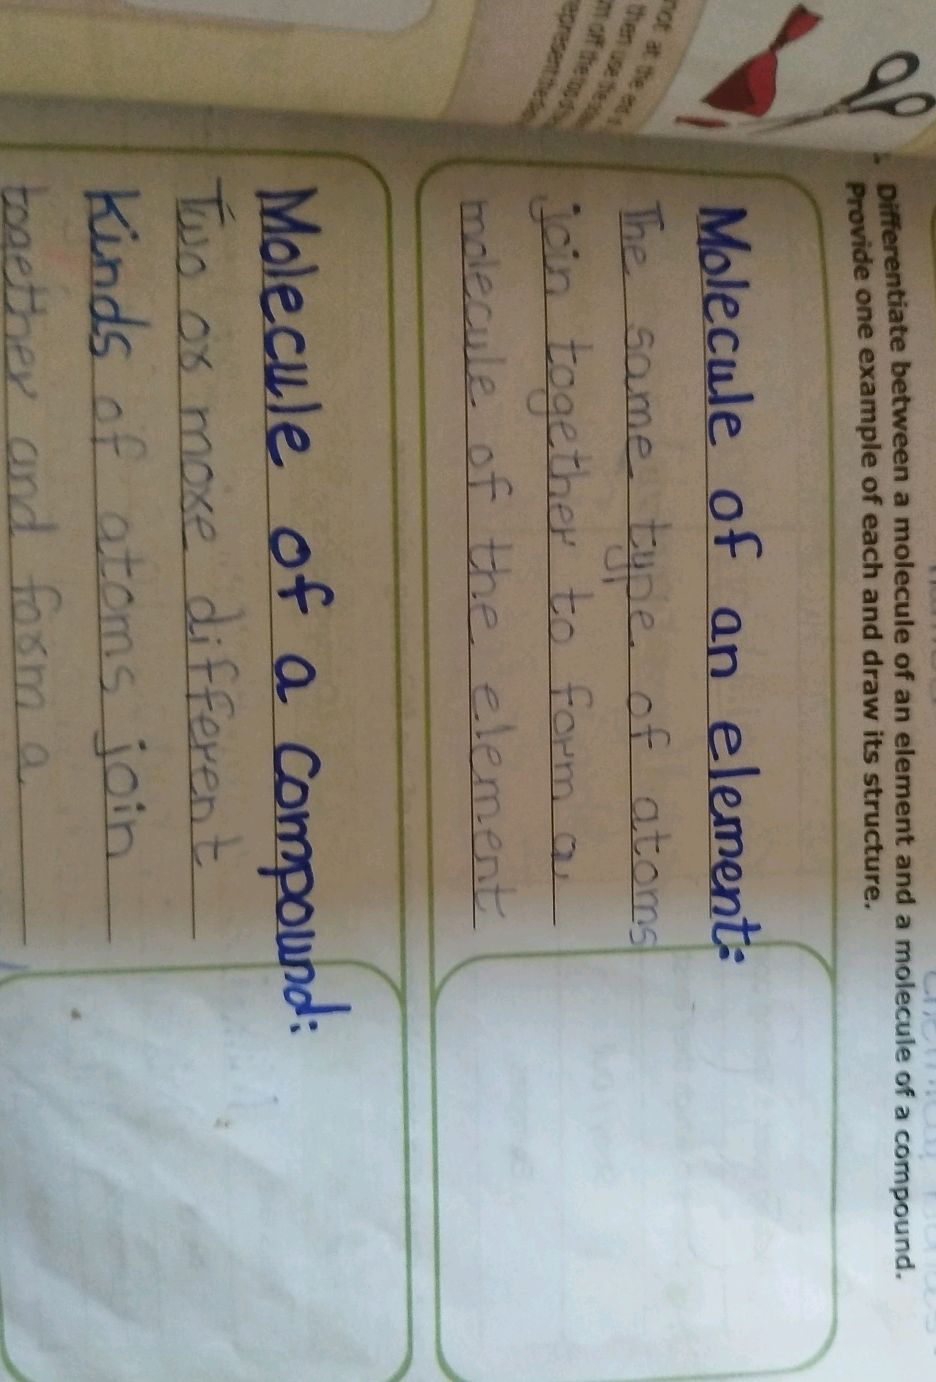 not at the
then use the
off the
represent the
Differentiate between a molecule of an element and a molecule of a compound.
Provide one example of each and draw its structure.
Molecule of an element:
The same type of atoms
join together to form a
molecule of the element
Molecule of a compound:
Two or more different
Kinds of atoms join
together and form a